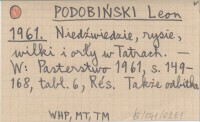 PODOBIŃSKI Leon
1961. Niedźwiedzie, rysie,
wilki i orły w Tatrach. —
W: Pasterstwo 1961, s. 149-
168, tabl. 6, Rés. Także odbitka
WHP, MT, TM